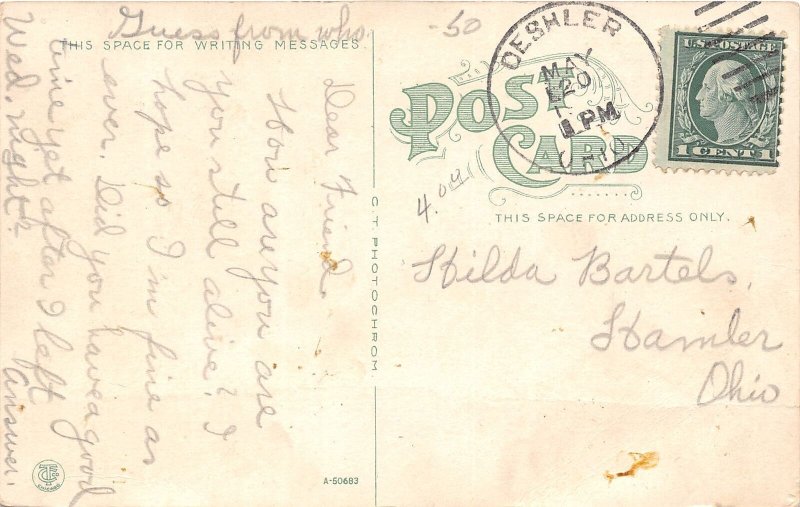 Guess from who.
THIS SPACE FOR WRITING MESSAGES.
Dear Friend,
How are you are
you still alive? I
hope so I'm fine as
ever. Did you have a good
time yet after I left
Wed. night?
Answer.
C.T. PHOTOCHROM
A-50683
CHICAGO
-50
4.04
DESHLER
MAY
20
1 PM
OHIO
U.S. POSTAGE
1 CENT 1
POST
CARD
THIS SPACE FOR ADDRESS ONLY.
Hilda Bartels,
Hamler
Ohio